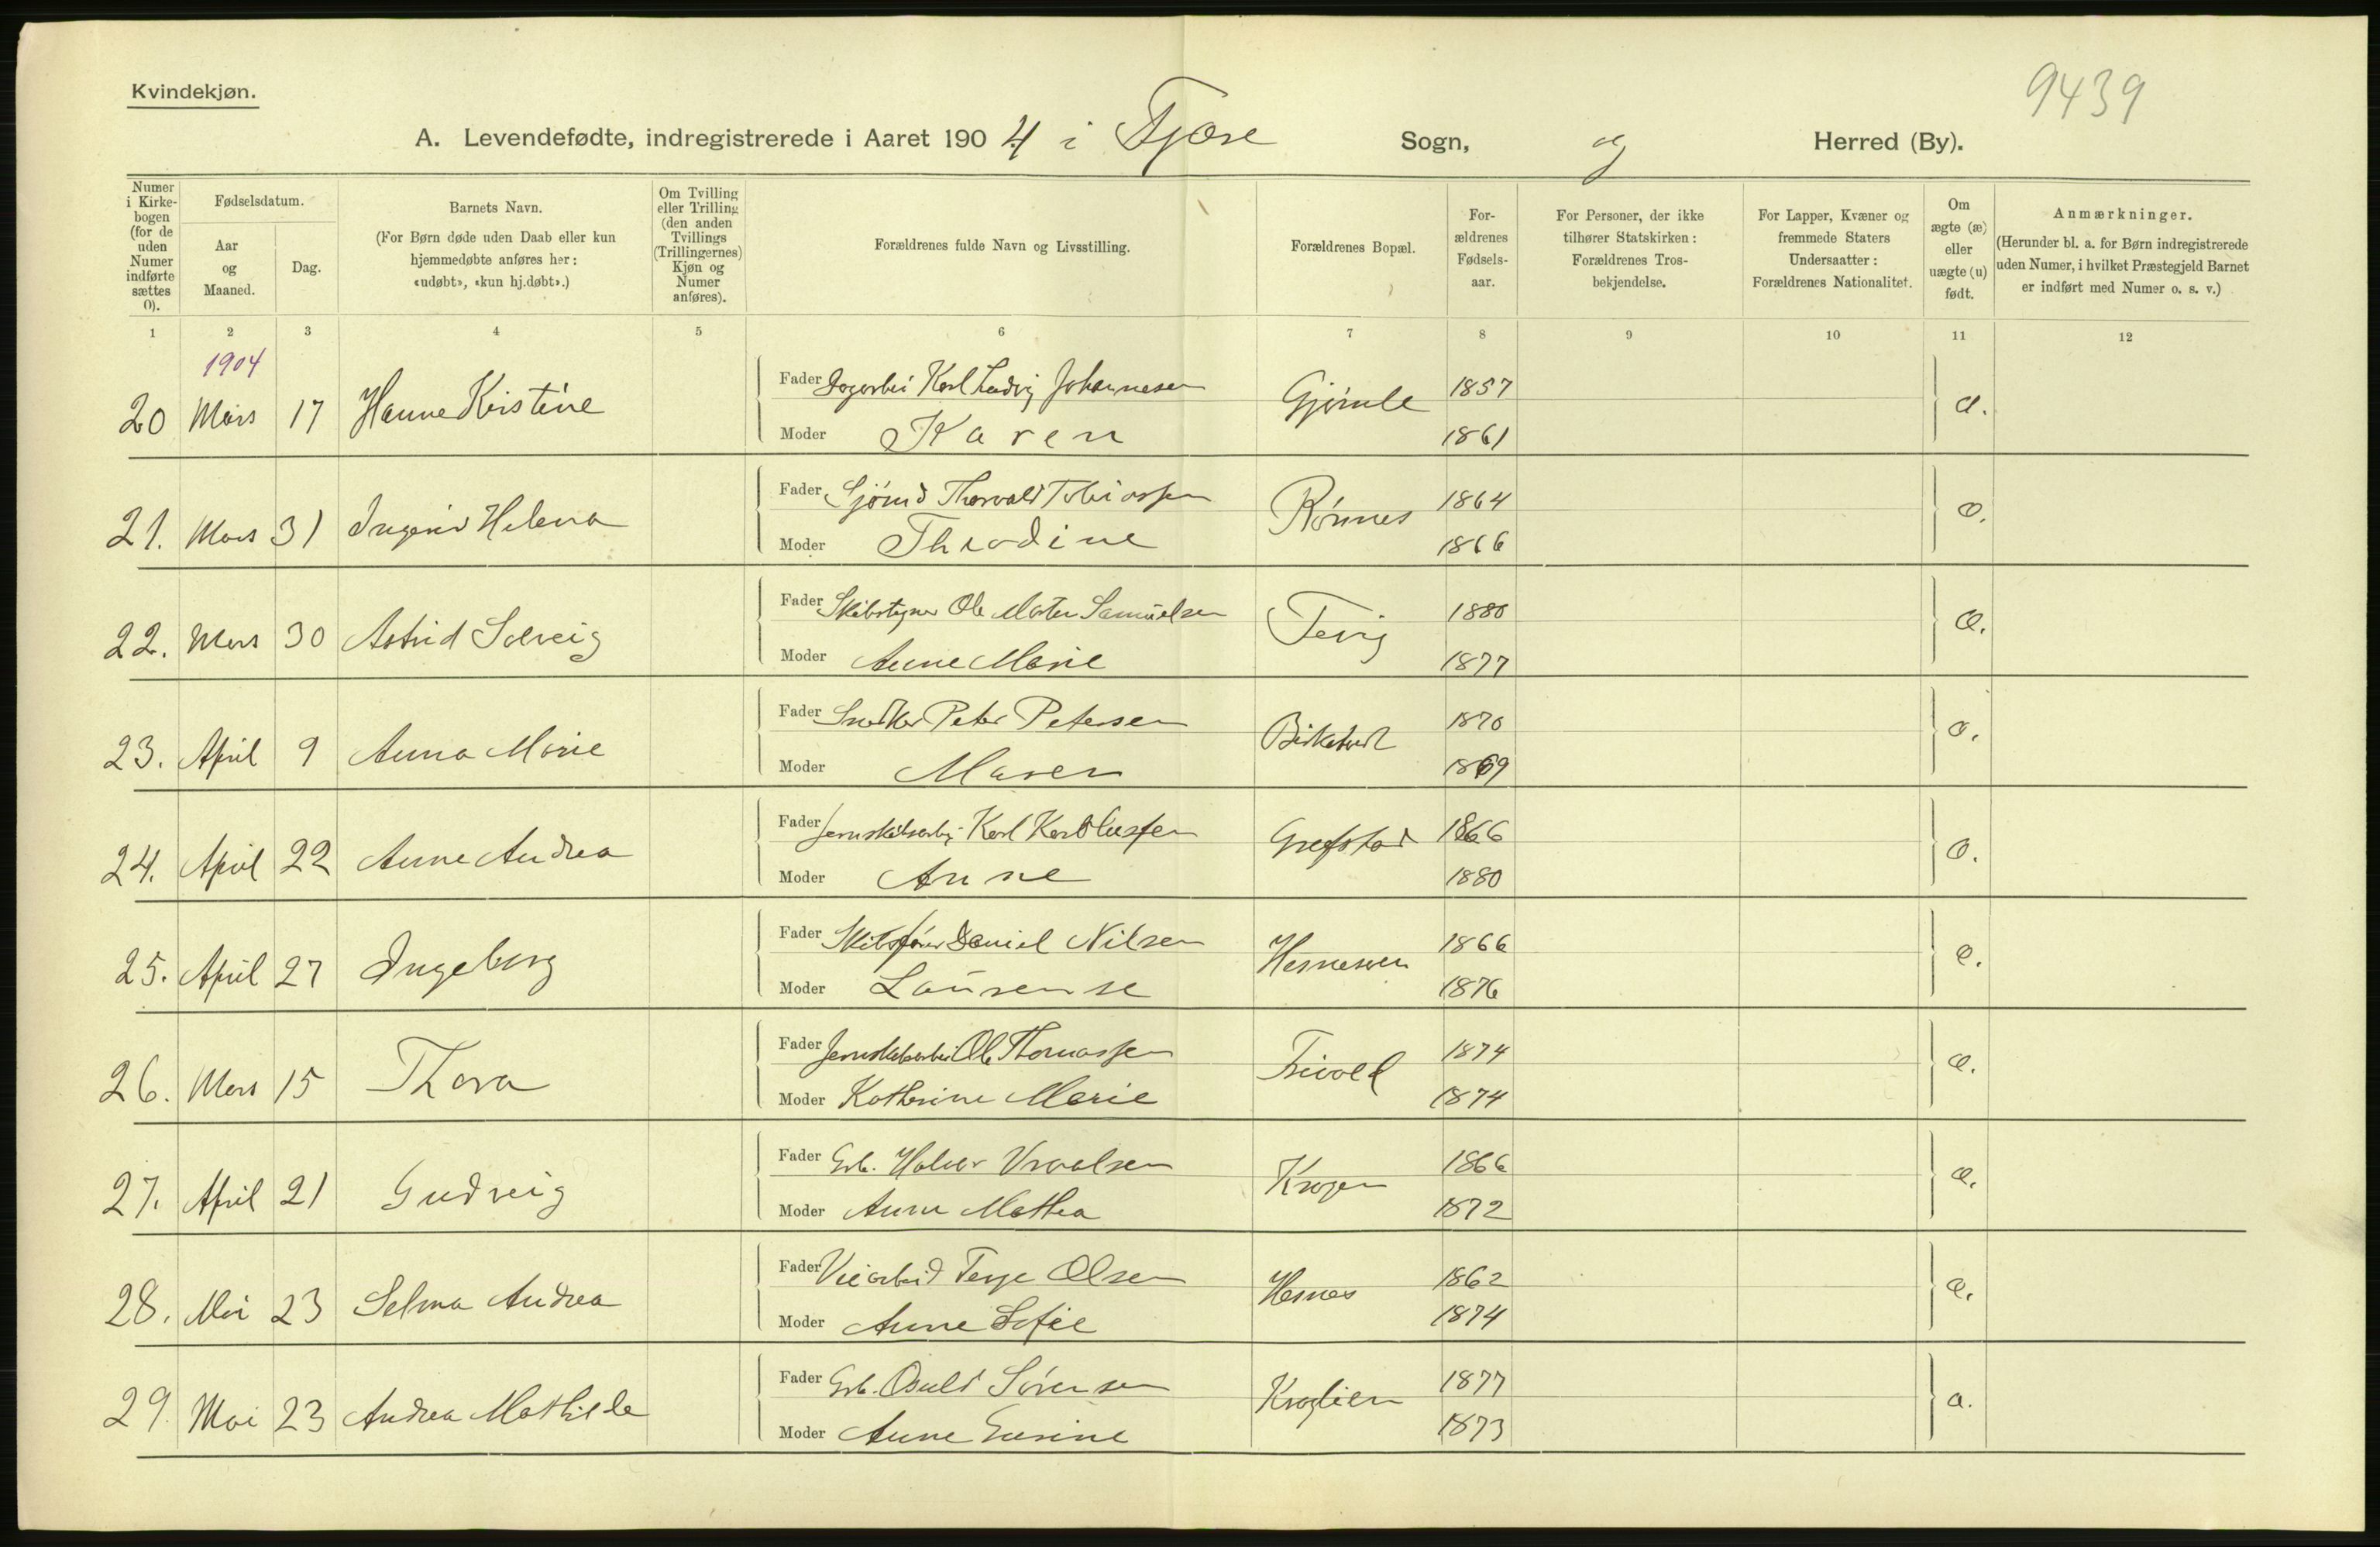 9439
Kvindekjøn.
A. Levendefødte, indregistrerede i Aaret 1904 i Fjære Sogn, og Herred (By).
Numer i Kirke-bogen (for de uden Numer indførte sættes 0).
Fødselsdatum.
Aar og Maaned.
Dag.
Barnets Navn.
(For Børn døde uden Daab eller kun hjemmedøbte anføres her: «udøbt», «kun hj.døbt».)
Om Tvilling eller Trilling (den anden Tvillings (Trillingernes) Kjøn og Numer anføres).
Forældrenes fulde Navn og Livsstilling.
Forældrenes Bopæl.
For-ældrenes Fødsels-aar.
For Personer, der ikke tilhører Statskirken: Forældrenes Tros-bekjendelse.
For Lapper, Kvæner og fremmede Staters Undersaatter: Forældrenes Nationalitet.
Om ægte (æ) eller uægte (u) født.
Anmærkninger.
(Herunder bl. a. for Børn indregistrerede uden Numer, i hvilket Præstegjeld Barnet er indført med Numer o. s. v.)
1 2 3 4 5 6 7 8 9 10 11 12
1904
Fader Dagarbei Karl Ludvig Johannesen 1857
20 Mars 17 Hanne Kristine Gjømle æ.
Moder Karen 1861
Fader Sjømd Thorvald Tobiassen 1864
21. Mars 31 Ingerid Helena Rønnes æ.
Moder Theodine 1866
Fader Skibstømr Ole Martin Samuelsen 1880
22. Mars 30 Astrid Solveig Fevig æ.
Moder Anne Marie 1877
Fader Snedker Peter Petersen 1870
23. April 9 Anna Marie Birketvedt æ.
Moder Maren 1869
Fader Jernskibsarb. Karl Karoliussen 1866
24. April 22 Anne Andrea Grefstad æ.
Moder Anne 1880
Fader Skibsfører Daniel Nilsen 1866
25. April 27 Ingeborg Hesnesøen æ.
Moder Laurense 1876
Fader Jernskibsarbei Ole Thomassen 1874
26. Mars 15 Thora Frivold æ.
Moder Kathrine Marie 1874
Fader Grb. Halvor Vraalsen 1866
27. April 21 Gudveig Krogen æ.
Moder Anne Mathea 1872
Fader Veiarbeid Terje Olsen 1862
28. Mai 23 Selma Andrea Hesnes æ.
Moder Anne Sofie 1874
Fader Grb. Osuld Sørensen 1877
29. Mai 23 Andrea Mathilde Kroglien æ.
Moder Anne Gurine 1873